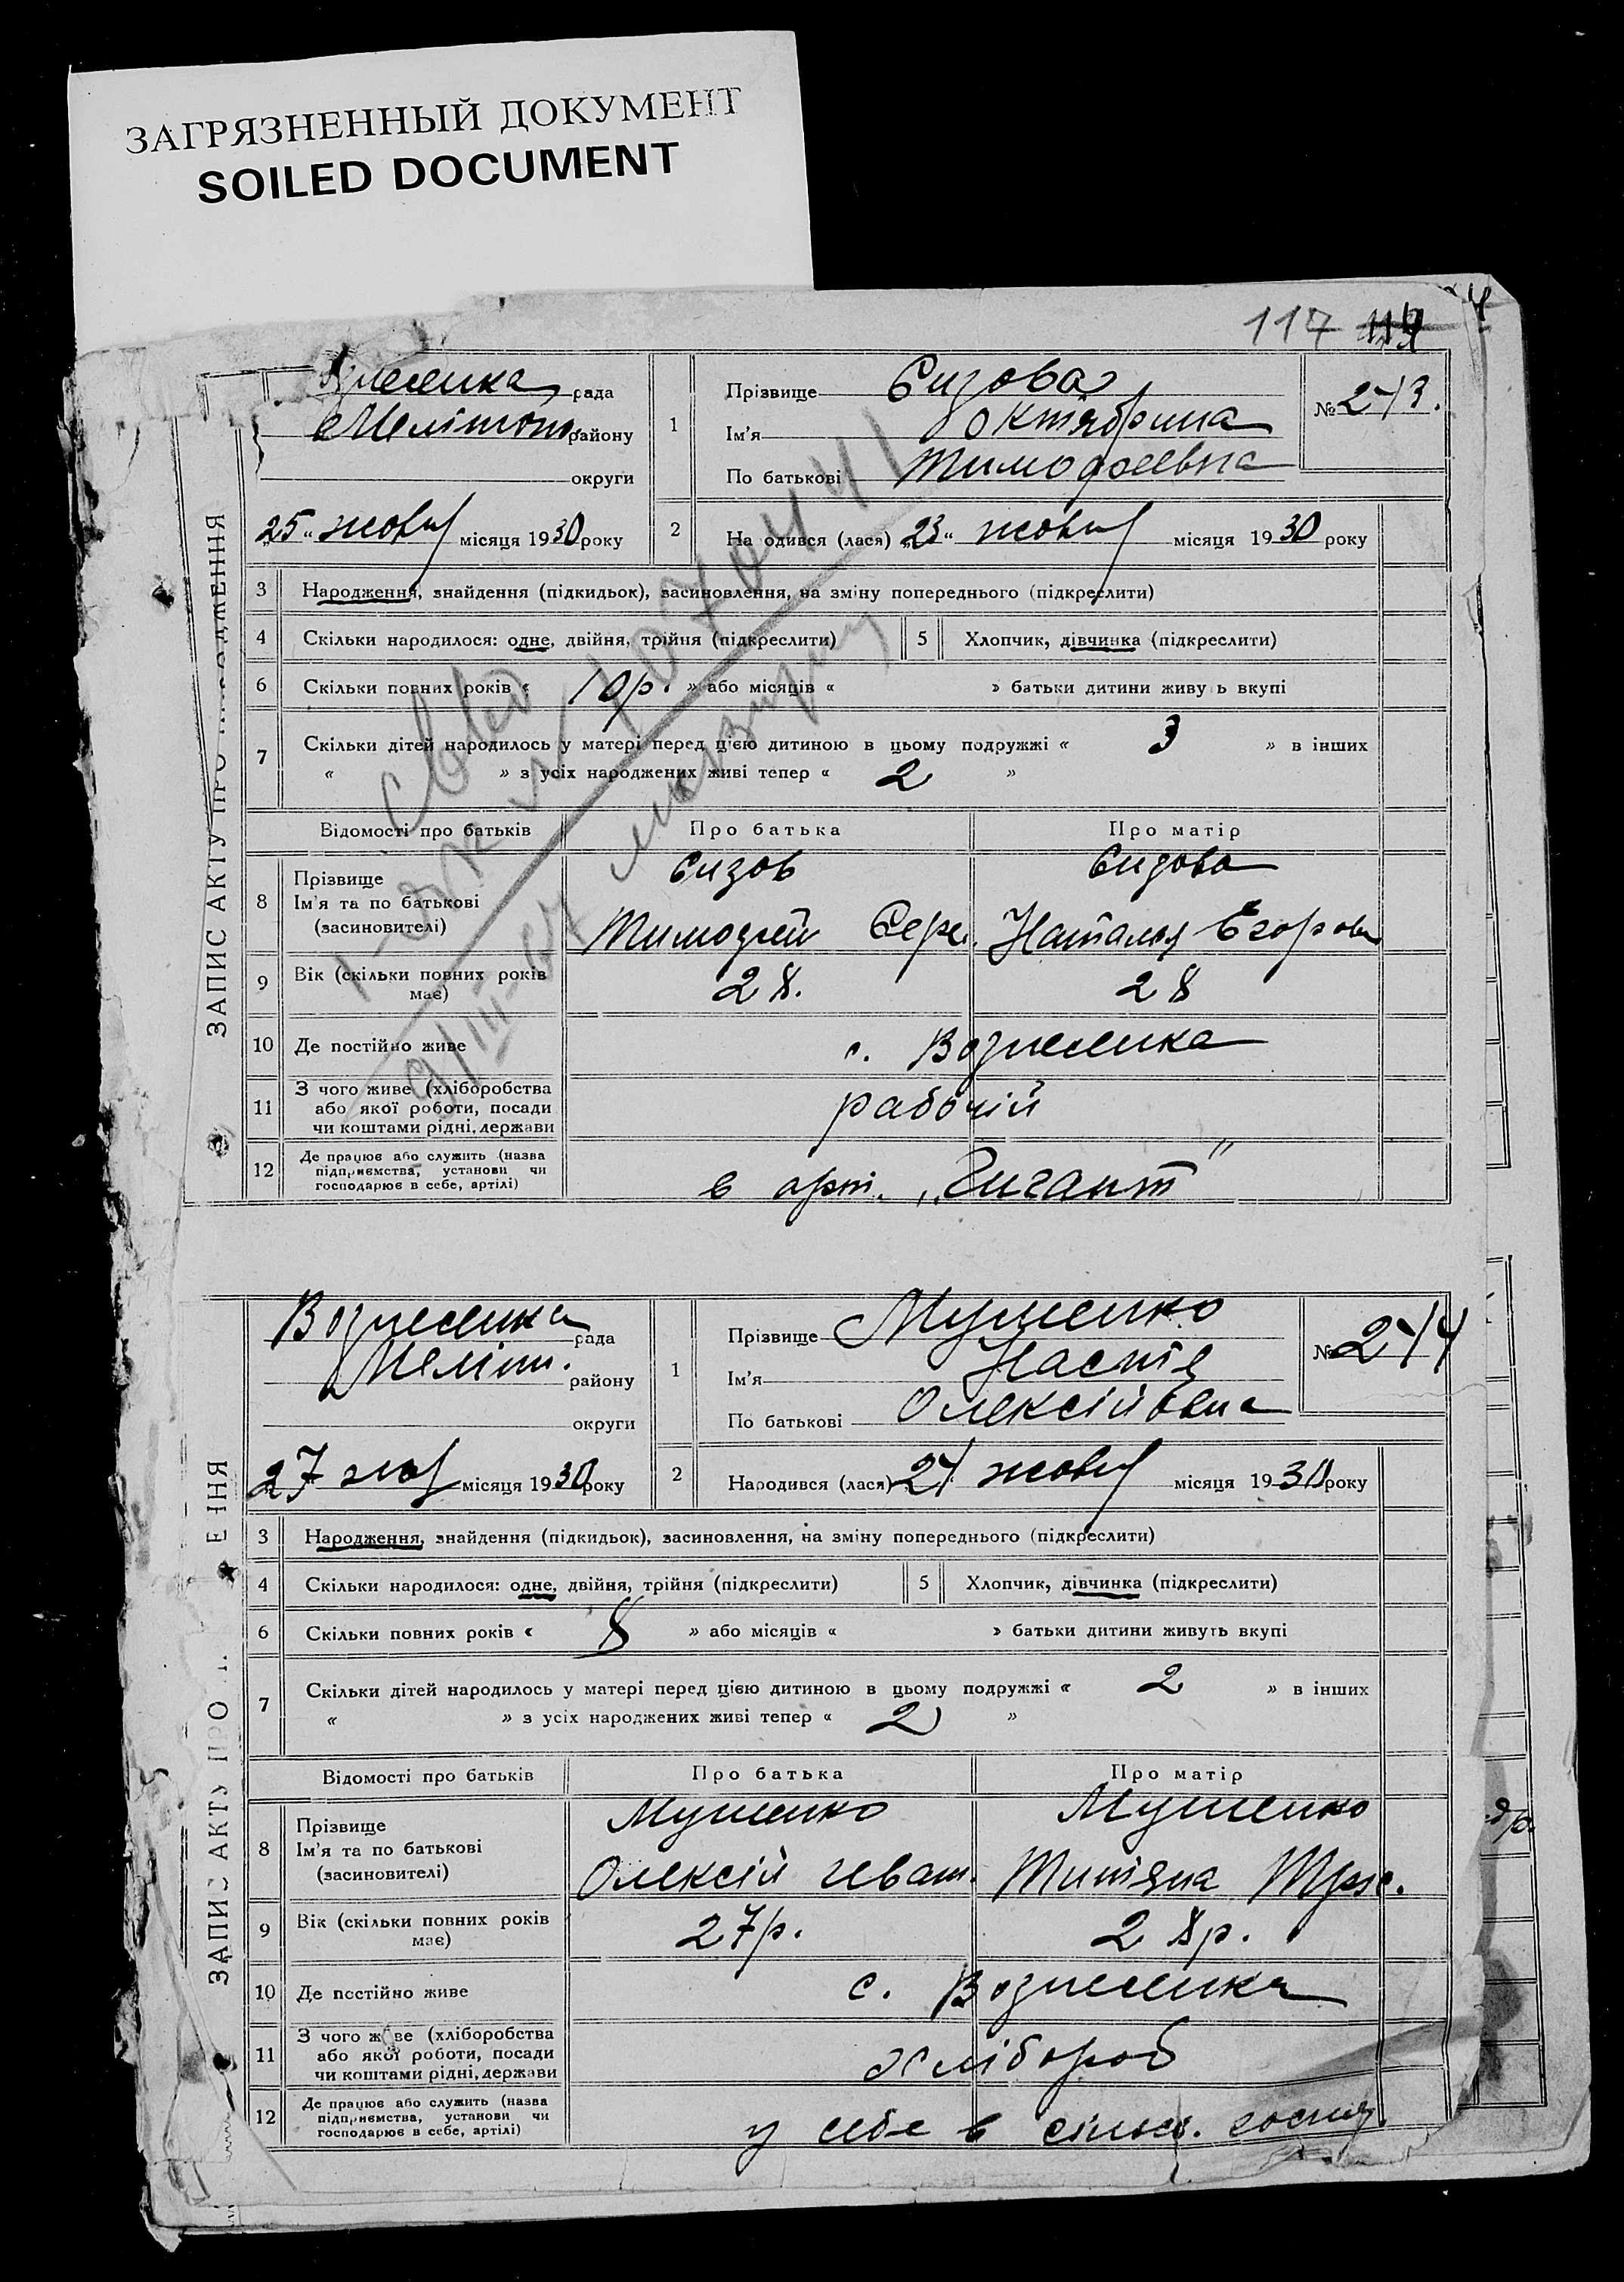 ЗАГРЯЗНЕННЫЙ ДОКУМЕНТ
SOILED DOCUMENT
117 114
ЗАПИС АКТУ ПРО
рада
Мелітоп. району
округи
"25" жовт місяця 1930 року
1
Прізвище Сизова
Ім'я Октябрина
По батькові Тимофеевна
№ 273.
2
На одився (лася) "23" жовт місяця 1930 року
3 Народження, знайдення (підкидьок), засиновлення, на зміну попереднього (підкреслити)
4 Скільки народилося: одне, двійня, трійня (підкреслити) 5 Хлопчик, дівчинка (підкреслити)
6 Скільки повних років « 10 р. » або місяців « » батьки дитини живу ь вкупі
7 Скільки дітей народилось у матері перед цією дитиною в цьому подружжі « 3 » в інших
« » з усіх народжених живі тепер « 2 »
Відомості про батьків Про батька Про матір
8 Прізвище
Ім'я та по батькові
(засиновителі)
Сизов Сизова
Тимофей Серг. Наталья Егоровн
9 Вік (скільки повних років
має)
28. 28
10 Де постійно живе с. Вознесенка
11 З чого живе (хліборобства
або якої роботи, посади
чи коштами рідні, держави
рабочій
12 Де працює або служить (назва
підприємства, установи чи
господарює в себе, артілі)
в арт. „Гигант"
ЗАПИС АКТУ ПРО
Вознесенка рада
Меліт. району
округи
27 жов місяця 1930 року
1
Прізвище Мушенко
Ім'я Настя
По батькові Олексійовна
№ 274
2
Народився (лася) 24 жовт місяця 1930 року
3 Народження, знайдення (підкидьок), засиновлення, на зміну попереднього (підкреслити)
4 Скільки народилося: одне, двійня, трійня (підкреслити) 5 Хлопчик, дівчинка (підкреслити)
6 Скільки повних років « 8 » або місяців « » батьки дитини живуть вкупі
7 Скільки дітей народилось у матері перед цією дитиною в цьому подружжі « 2 » в інших
« » з усіх народжених живі тепер « 2 »
Відомості про батьків Про батька Про матір
8 Прізвище
Ім'я та по батькові
(засиновителі)
Мушенко Мушенко
Олексій Титяна
9 Вік (скільки повних років
має)
27 р. 28 р.
10 Де постійно живе с. Вознесенка
11 З чого живе (хліборобства
або якої роботи, посади
чи коштами рідні, держави
хлібороб
12 Де працює або служить (назва
підприємства, установи чи
господарює в себе, артілі)
у себе в сільск. господ.